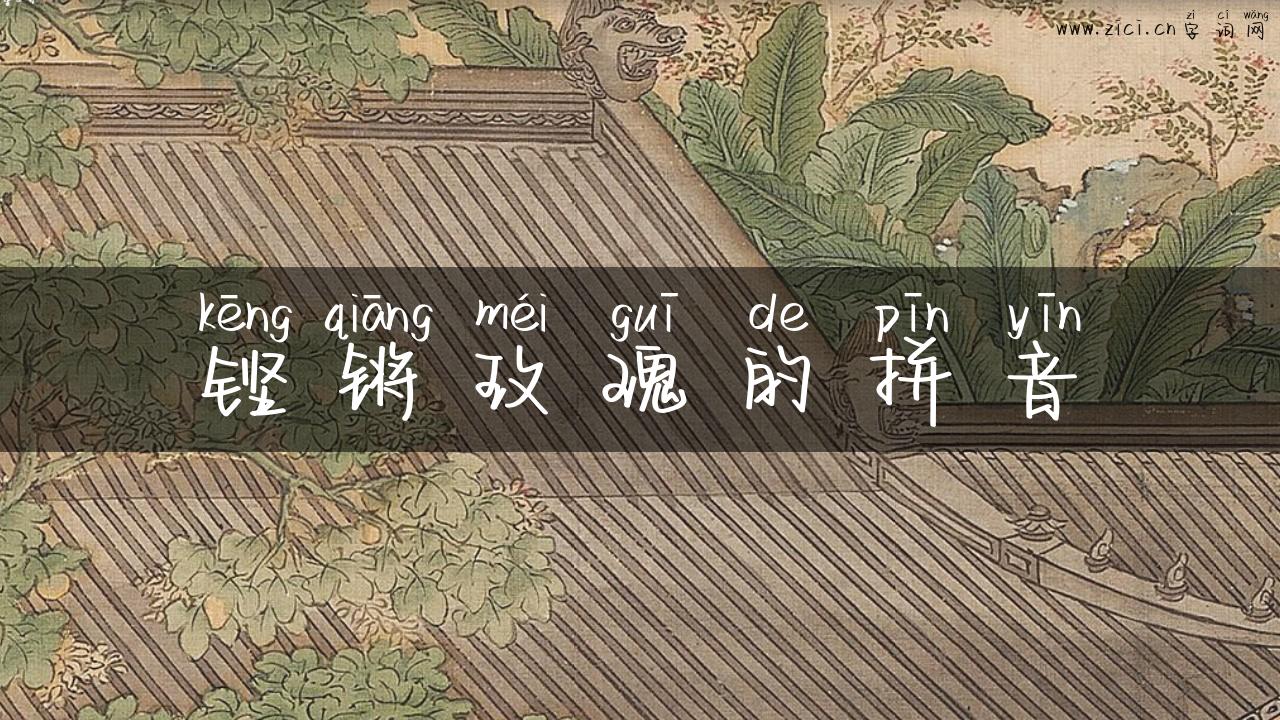 zì cí wǎng
www.zici.cn 字词网
kēng qiāng méi guī de pīn yīn
铿锵玫瑰的拼音